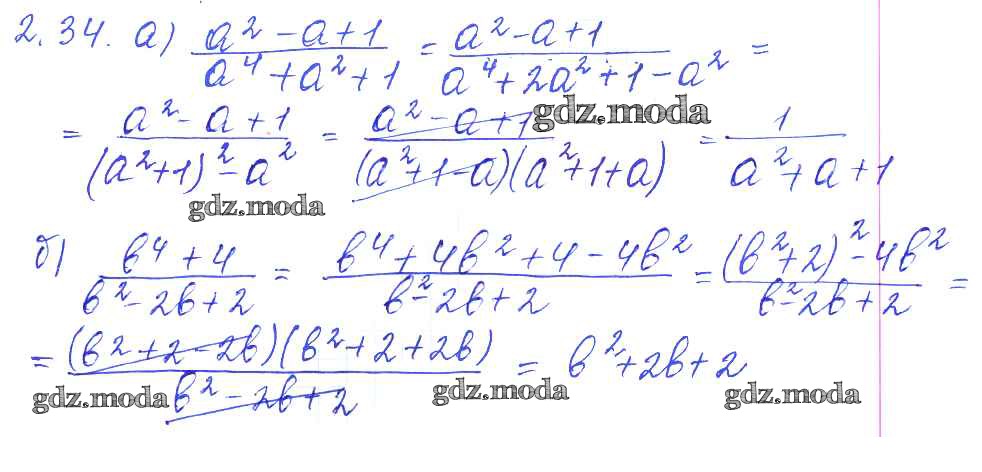 2.34. а) (a² - a + 1)/(a⁴ + a² + 1) = (a² - a + 1)/(a⁴ + 2a² + 1 - a²) =
= (a² - a + 1)/((a² + 1)² - a²) = (a² - a + 1)/((a² + 1 - a)(a² + 1 + a)) = 1/(a² + a + 1)
gdz.moda
gdz.moda
б) (b⁴ + 4)/(b² - 2b + 2) = (b⁴ + 4b² + 4 - 4b²)/(b² - 2b + 2) = ((b² + 2)² - 4b²)/(b² - 2b + 2) =
= ((b² + 2 - 2b)(b² + 2 + 2b))/(b² - 2b + 2) = b² + 2b + 2
gdz.moda gdz.moda gdz.moda